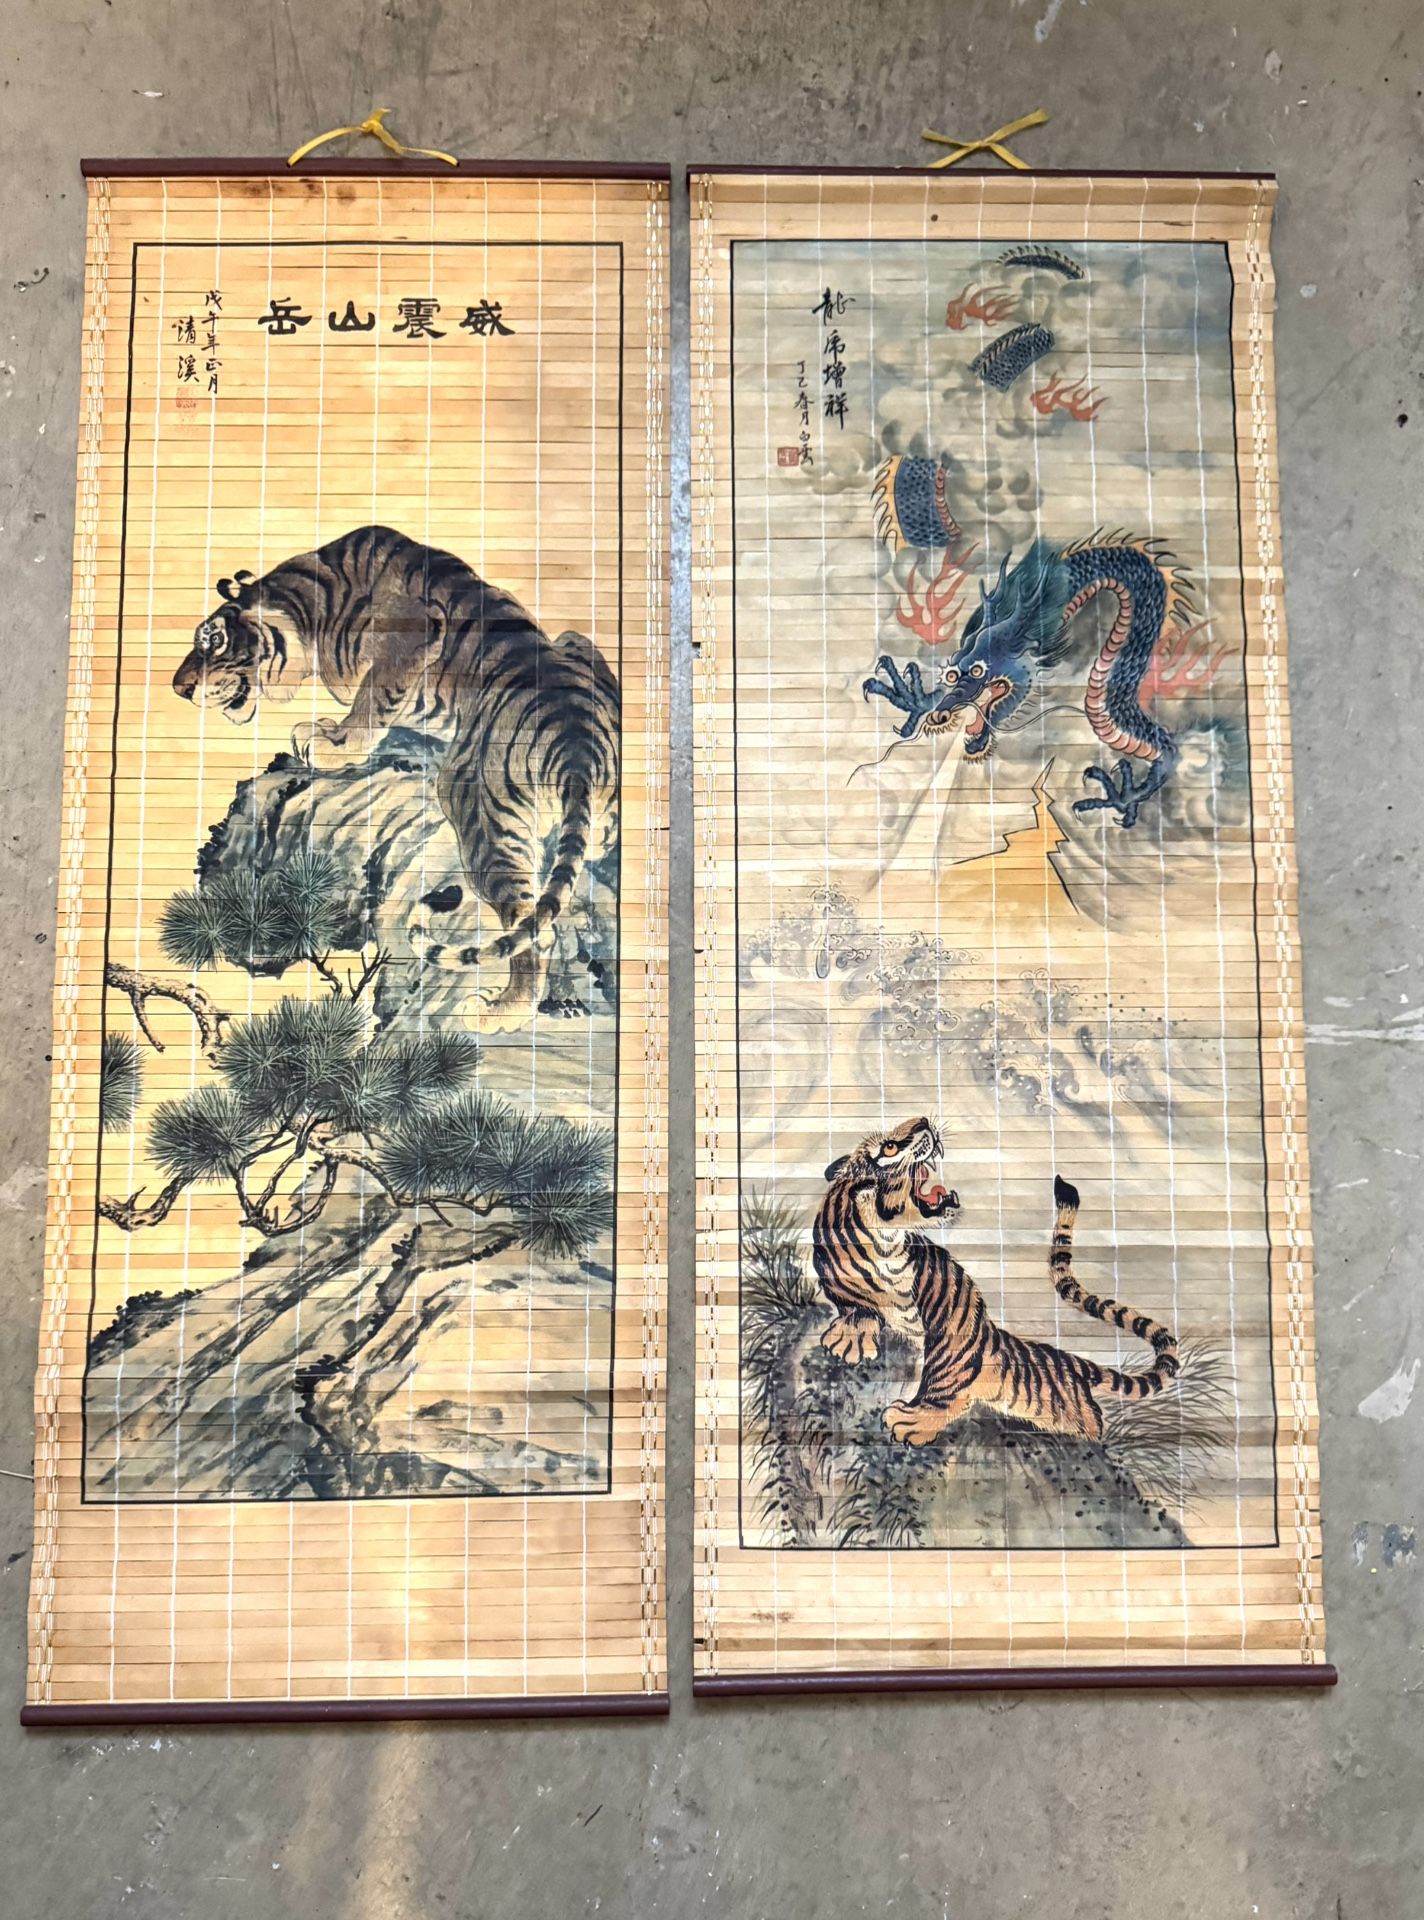 威震山岳
戊午年正月
清溪
龍虎增祥
丁巳春月白雲